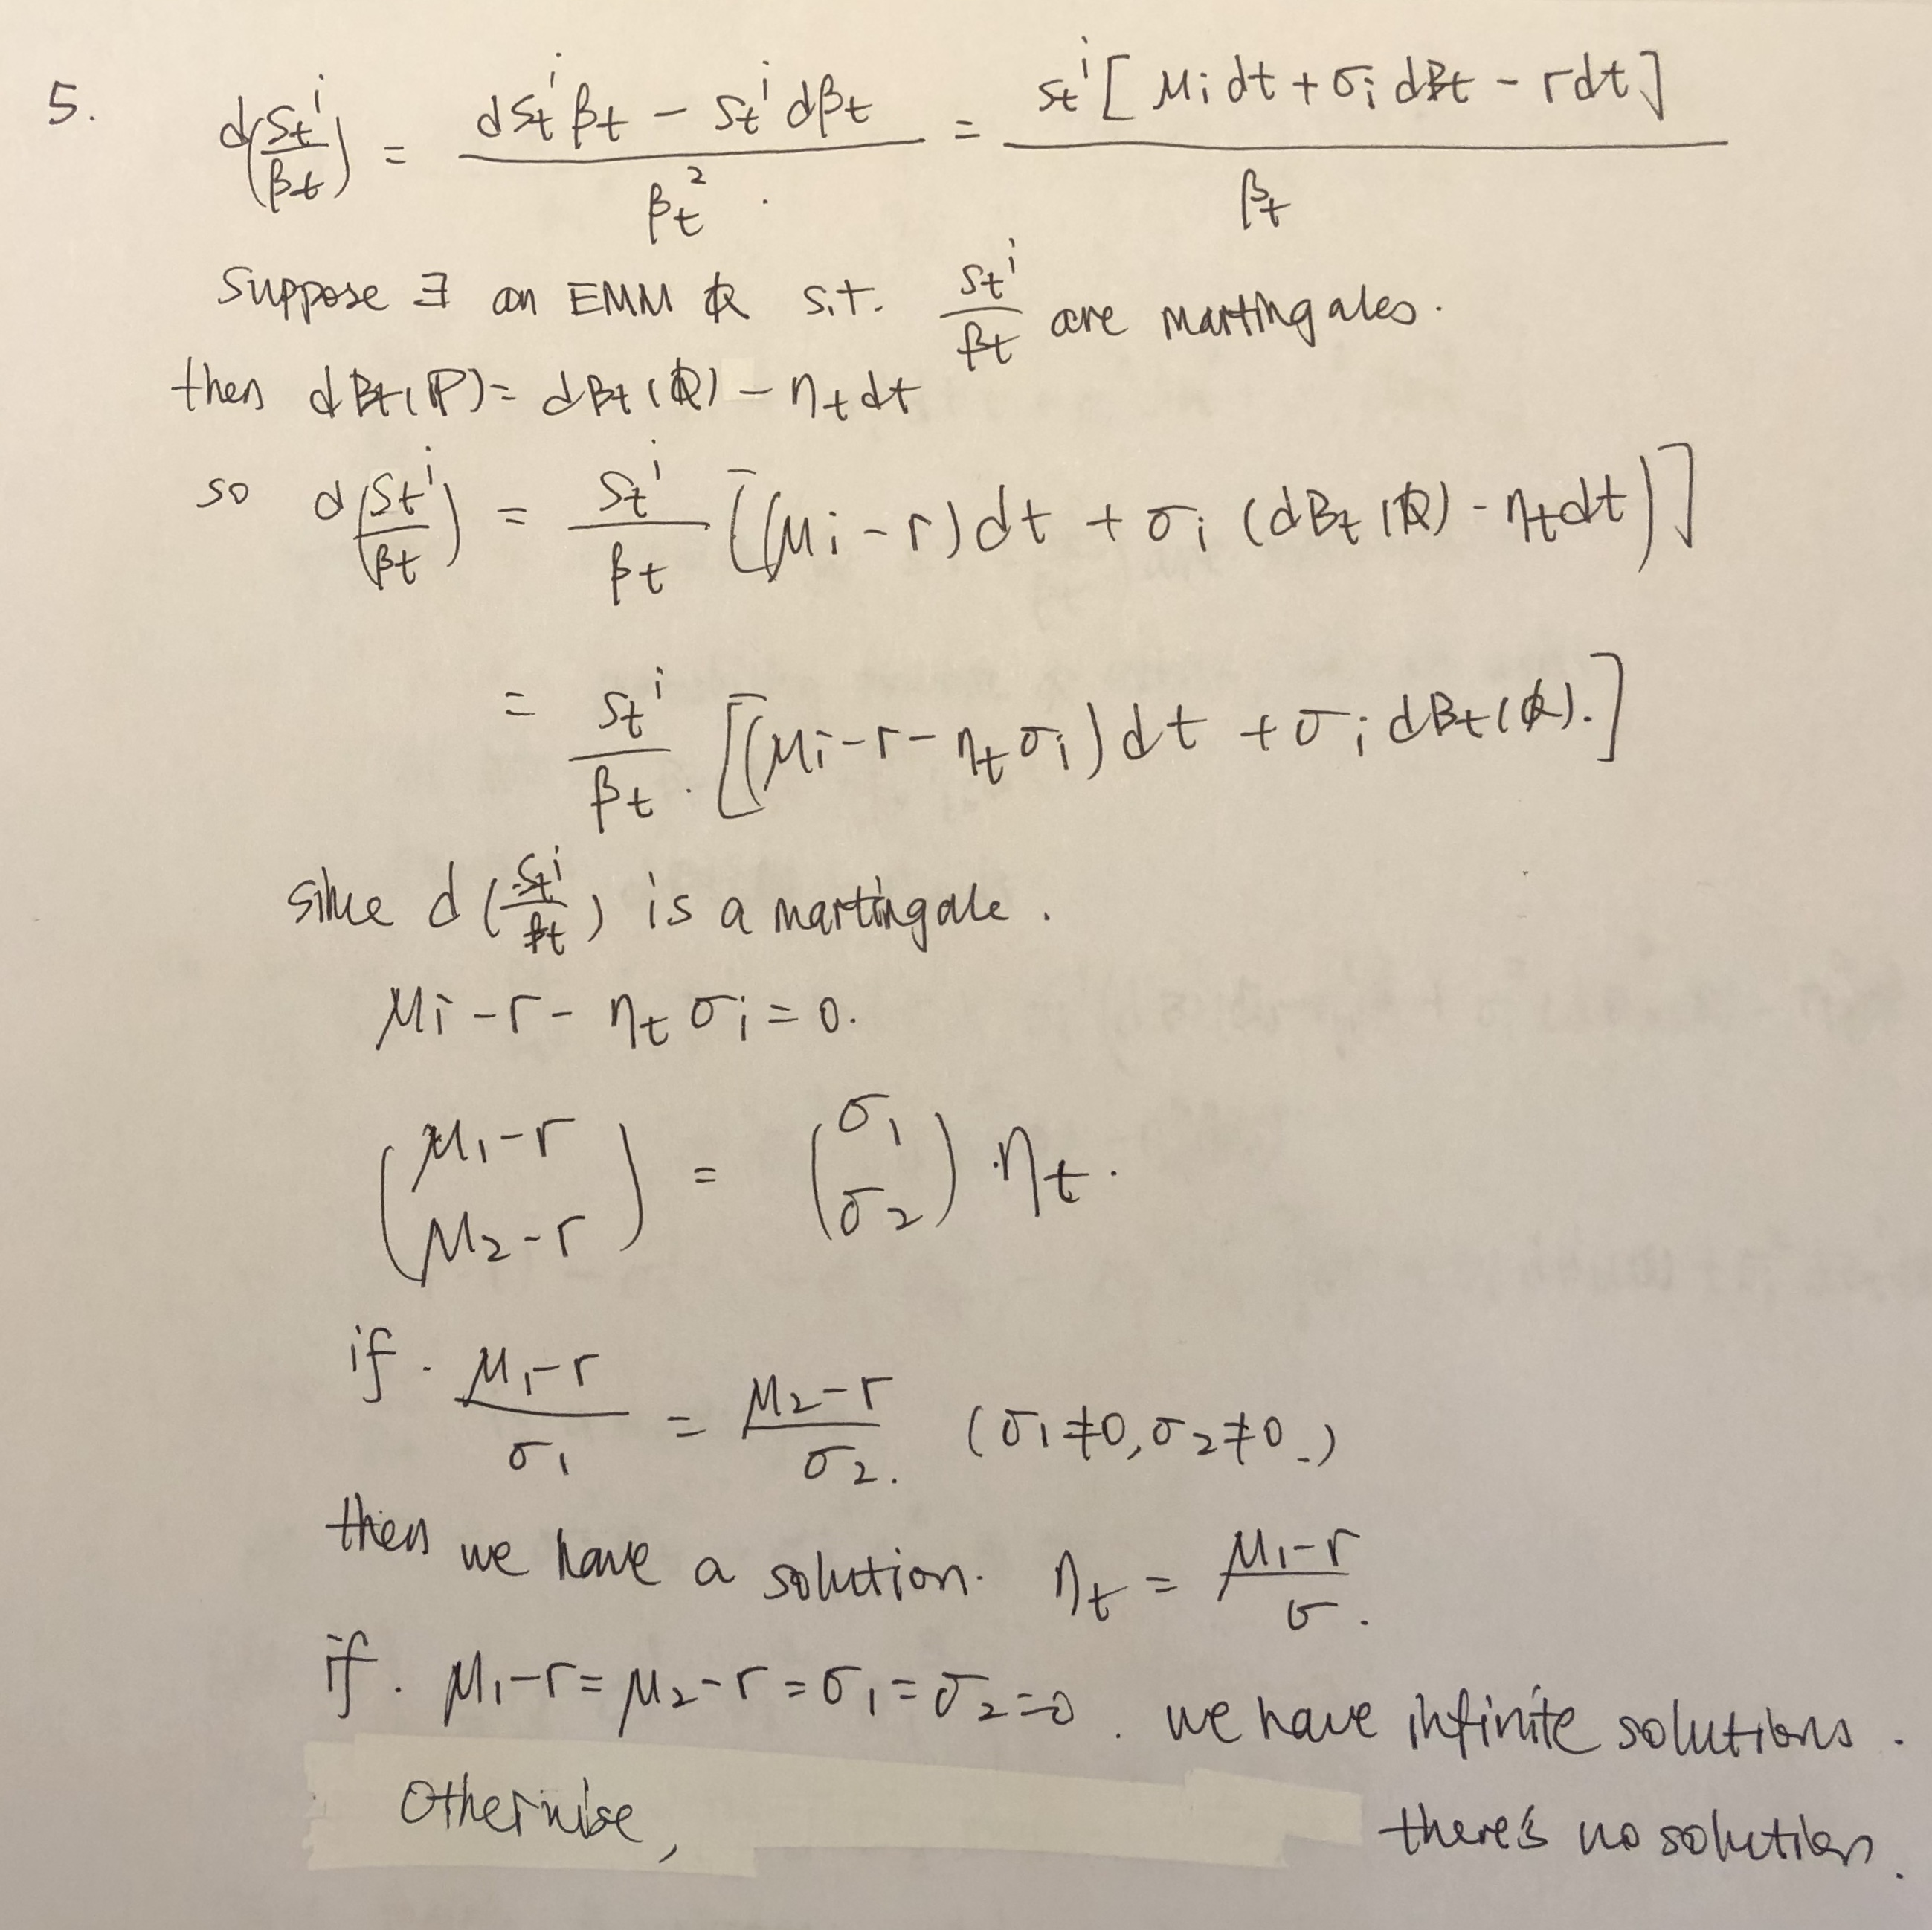 5. d(St^i/βt) = (dSt^i βt − St^i dβt)/βt^2. = St^i[μi dt + σi dBt − rdt]/βt
Suppose ∃ an EMM Q s.t. St^i/βt are martingales.
then dBt(P) = dBt(Q) − ηt dt
so d(St^i/βt) = St^i/βt [(μi − r)dt + σi (dBt(Q) − ηt dt)]
= St^i/βt · [(μi − r − ηt σi)dt + σi dBt(Q).]
since d(St^i/βt) is a martingale.
μi − r − ηt σi = 0.
(μ1 − r
μ2 − r) = (σ1
σ2) · ηt.
if. (μ1 − r)/σ1 = (μ2 − r)/σ2. (σ1 ≠ 0, σ2 ≠ 0.)
then we have a solution. ηt = (μ1 − r)/σ.
if. μ1 − r = μ2 − r = σ1 = σ2 = 0. we have infinite solutions.
Otherwise, there's no solution.